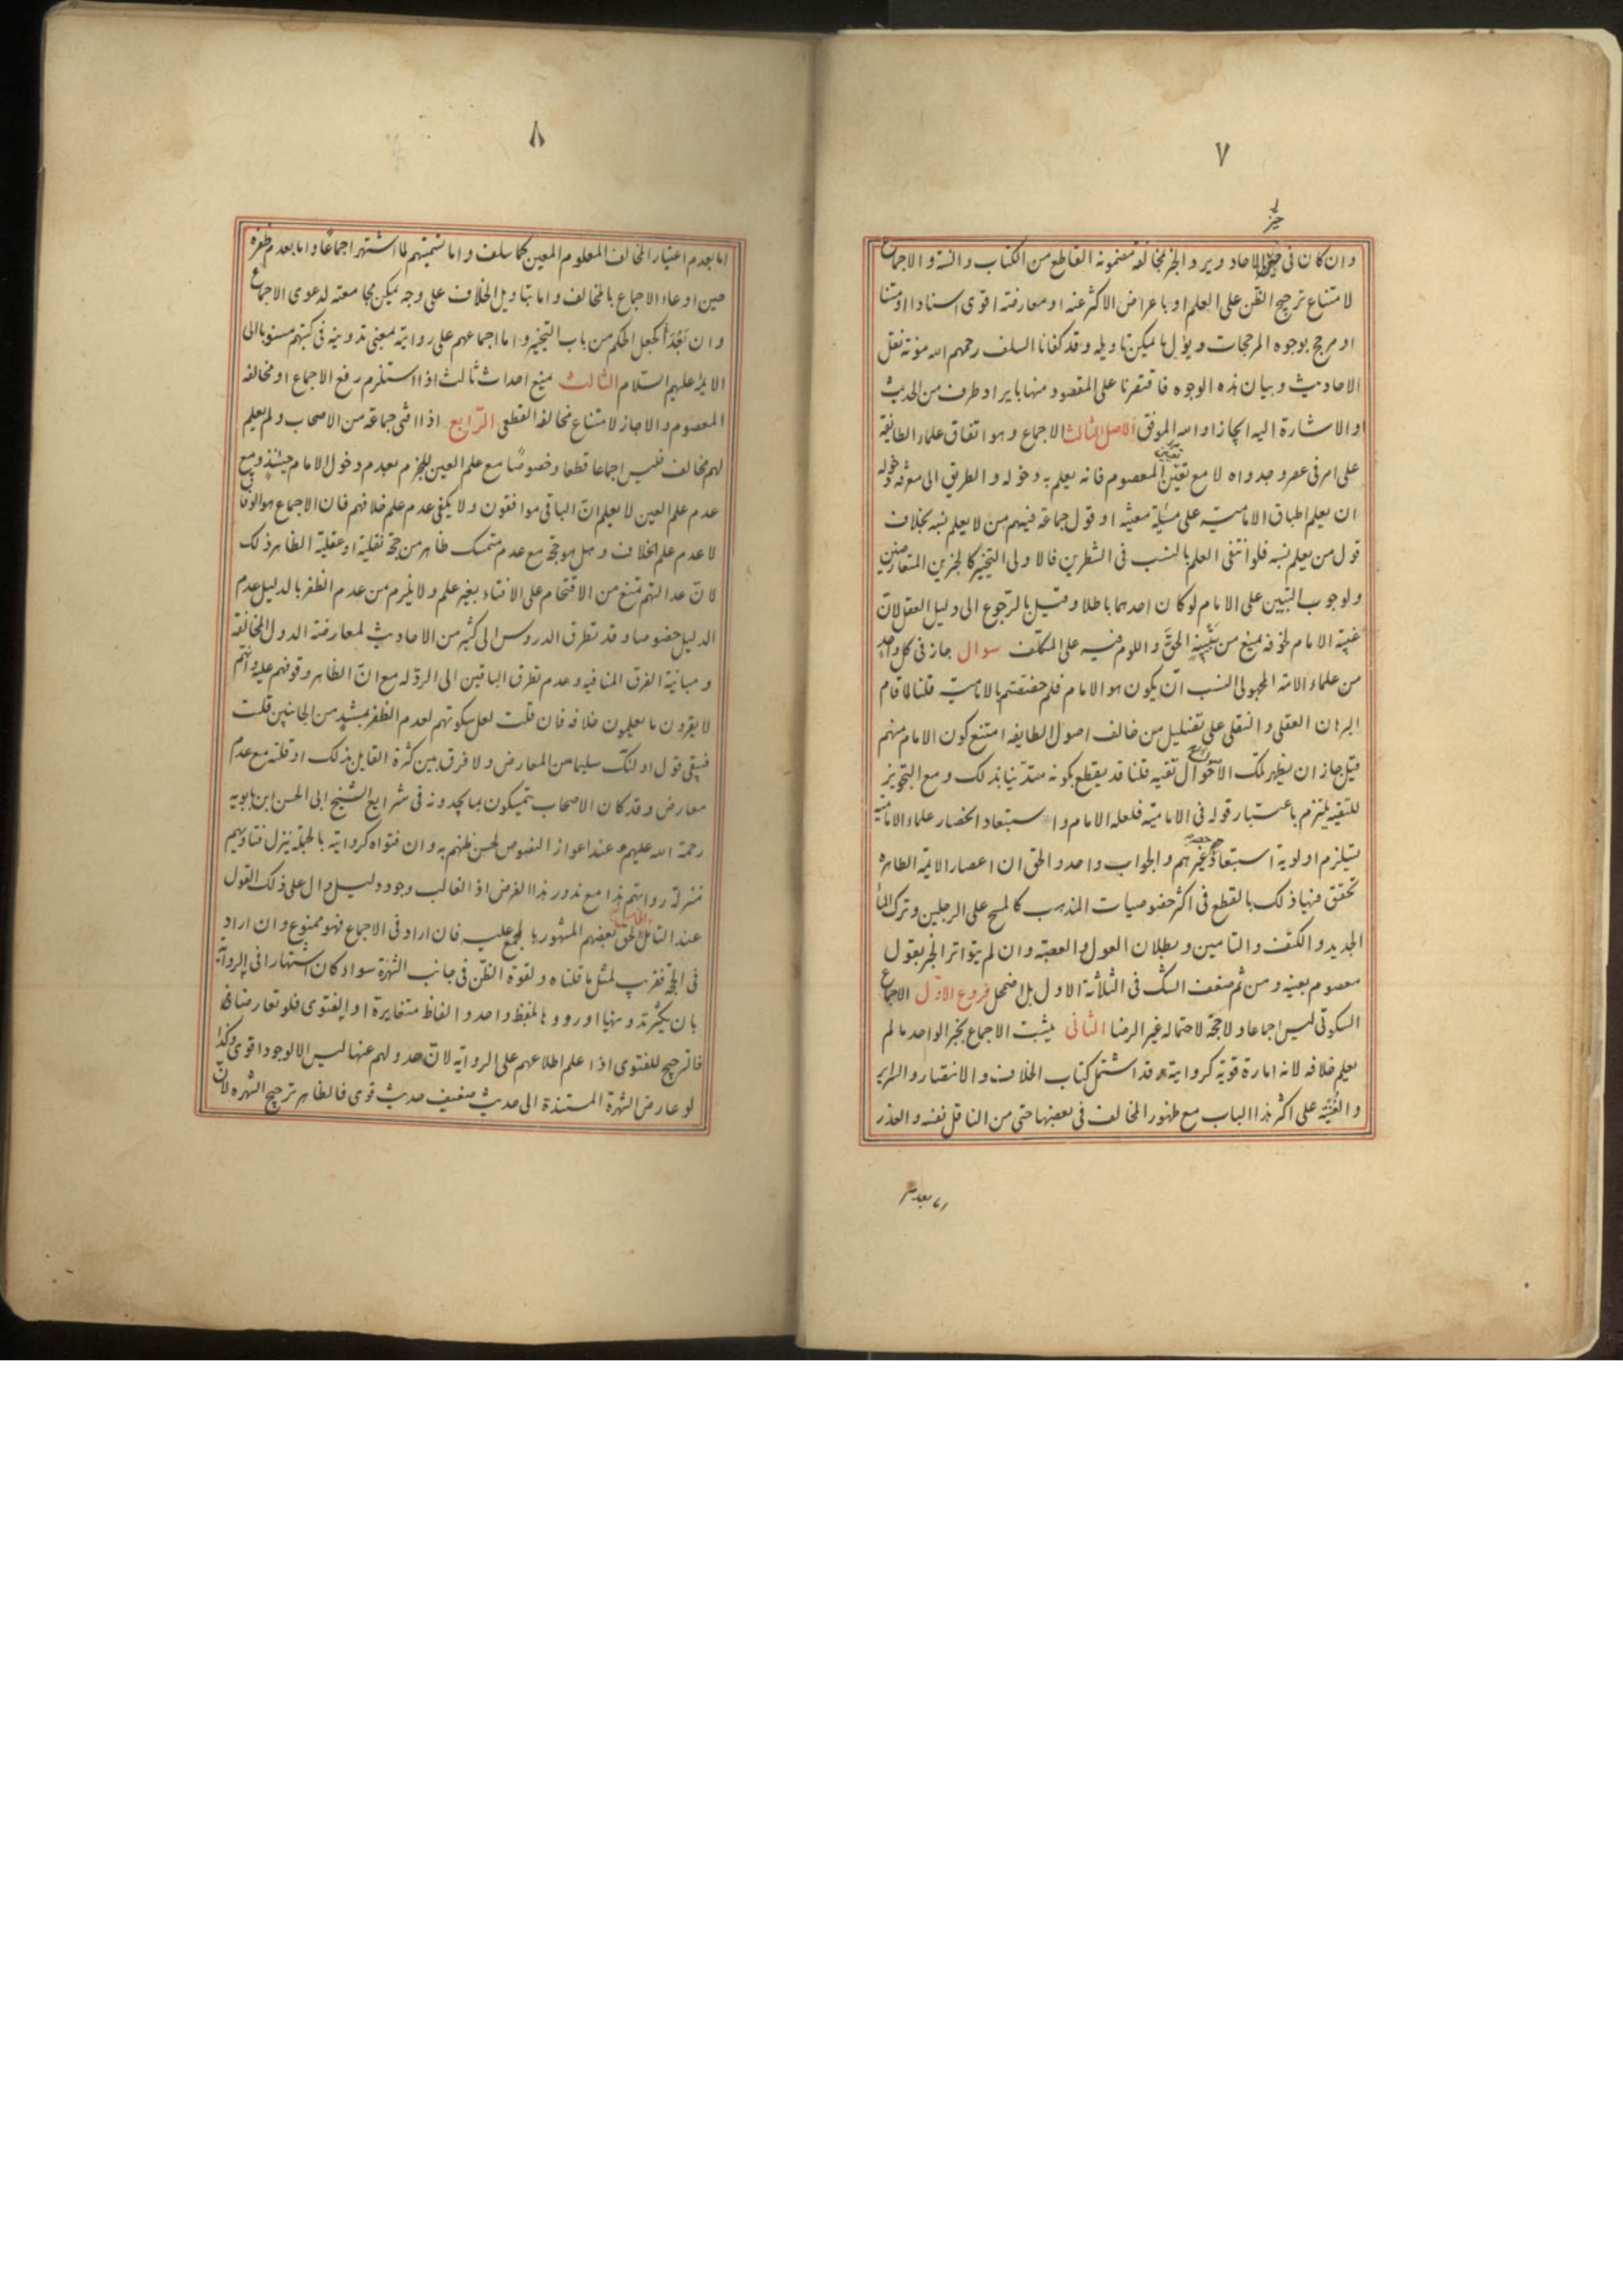 ٧
خبر
وان كان فى حيز الاحاد ويرد الخبر لمخالفة مضمونه القاطع من الكتاب والسنة والاجماع
لامتناع ترجيح الظن على العلم او باعراض الاكثر عنه او معارضته اقوى اسنادا او متنا
او مرجح بوجوه المرجحات ويؤل ما يمكن تاويله وقد كفانا السلف رحمهم الله مؤنة نقل
الاحاديث وبيان هذه الوجوه فاقتصرنا على المقصود منها بايراد طرف من الحديث
او الاشارة اليه ايجازا والله الموفق الاصل الثالث الاجماع وهو اتفاق علماء الطائفة
على امر فى عصر وجدواه لا مع تعين المعصوم فانه يعلم به دخوله والطريق الى معرفة دخوله
ان يعلم اطباق الامامية على مسئلة معينة او قول جماعة فيهم من لا يعلم نسبه بخلاف
قول من يعلم نسبه فلو انتفى العلم بالنسب فى الشطرين فالاولى التخيير كالخبرين المتعارضين
ولوجوب التبيين على الامام لو كان احدهما باطلا وقيل بالرجوع الى دليل العقل لان
غيبة الامام لخوفه يمنع من تبيينه الحق واللوم فيه على المكلف سوال جاز فى كل واحد
من علماء الامة المجهولى النسب ان يكون هو الامام فلم خصصتم بالامامية قلنا لما قام
البرهان العقلى والنقلى على تضليل من خالف اصول الطايفه امتنع كون الامام منهم
قيل جاز ان يظهر تلك الاحوال تقيه قلنا قد يقطع بكونه متدينا بذلك ومع التجويز
للتقيه يلتزم باعتبار قوله فى الامامية فلعله الامام واستبعاد انحصار علماء الامامية
يستلزم اولوية استبعاد حصر غيرهم والجواب واحد والحق ان اعصار الايمة الطاهره
تحقق فيها ذلك بالقطع فى اكثر خصوصيات المذهب كالمسح على الرجلين وترك الماء
الجديد والكتف والتامين وبطلان العول والعصبة وان لم يتواتر الخبر بقول
معصوم بعينه ومن ثم ضعف الشك فى الثلاثة الاول بل اضمحل فروع الاول الاجماع
السكوتى ليس اجماعا ولا حجة لاحتماله غير الرضا الثانى يثبت الاجماع بخبر الواحد ما لم
يعلم خلافه لانه امارة قوية كروايته وقد اشتمل كتاب الخلاف والانتصار والسراير
والغنية على اكثر هذا الباب مع ظهور المخالف فى بعضها حتى من الناقل نفسه والعذر
اما بعدم
٨
اما بعدم اعتبار المخالف المعلوم المعين كما سلف واما تسميتهم لما اشتهر اجماعا واما بعدم ظفره
حين ادعاء الاجماع بالمخالف واما بتاويل الخلاف على وجه يمكن مجامعته لدعوى الاجماع
وان بعد كجعل الحكم من باب التخيير واما اجماعهم على روايته بمعنى تدوينه فى كتبهم منسوبا الى
الايمة عليهم السلام الثالث يمنع احداث ثالث اذا استلزم رفع الاجماع او مخالفة
المعصوم والا جاز لامتناع مخالفة القطعى الرابع اذا افتى جماعة من الاصحاب ولم يعلم
لهم مخالف فليس اجماعا قطعا وخصوصا مع علم العين للجزم بعدم دخول الامام حينئذ ومع
عدم علم العين لا يعلم ان الباقى موافقون ولا يكفى عدم علم خلافهم فان الاجماع هو الوفاق
لا عدم علم الخلاف وهل هو حجة مع عدم متمسك ظاهر من حجة نقلية او عقلية الظاهر ذلك
لان عدالتهم تمنع من الاقتحام على الافتاء بغير علم ولا يلزم من عدم الظفر بالدليل عدم
الدليل خصوصا وقد تطرق الدروس الى كثير من الاحاديث لمعارضة الدول المخالفة
ومباينة الفرق المنافيه وعدم تطرق الباقين الى الرد له مع ان الظاهر وقوفهم عليه وانهم
لا يقرون ما يعلمون خلافه فان قلت لعل سكوتهم لعدم الظفر بمستند من الجانبين قلت
فيبقى قول اولئك سليما من المعارض ولا فرق بين كثرة القايل بذلك او قلته مع عدم
معارض وقد كان الاصحاب يتمسكون بما يجدونه فى شرايع الشيخ ابى الحسن ابن بابويه
رحمة الله عليهم عند اعواز النصوص لحسن ظنهم به وان فتواه كروايته بالجملة ينزل فتاويهم
منزلة روايتهم هذا مع ندور هذا الفرض اذ الغالب وجود دليل دال على ذلك القول
عند التامل الخامس الحق بعضهم المشهور بالمجمع عليه فان اراد فى الاجماع فهو ممنوع وان اراد
فى الحجة فقريب لمثل ما قلناه ولقوة الظن فى جانب الشهرة سواء كان اشتهارا فى الرواية
بان يكثر تدوينها او رووها بلفظ واحد والفاظ متغايرة او الفتوى فلو تعارضا
فالترجيح للفتوى اذا علم اطلاعهم على الرواية لان عدولهم عنها ليس الا لوجود اقوى وكذا
لو عارض الشهرة المستندة الى حديث ضعيف حديث قوى فالظاهر ترجيح الشهره لان